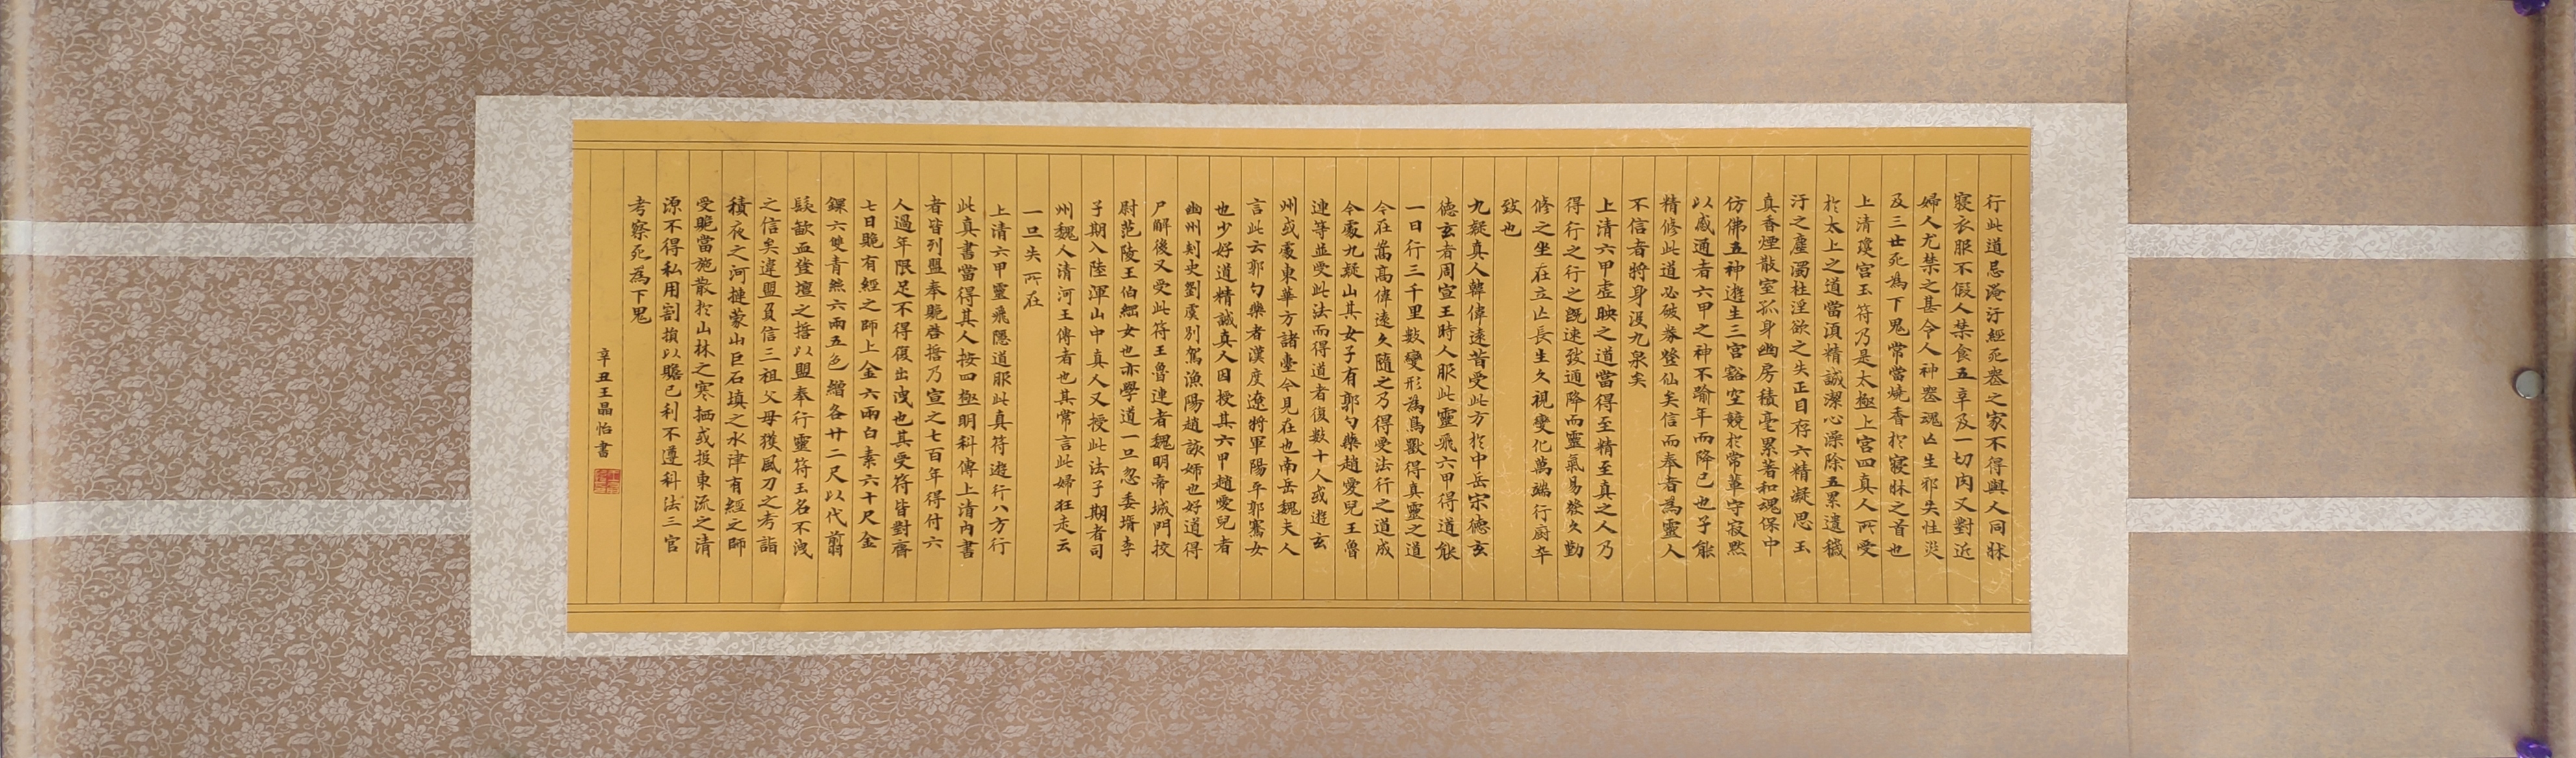 行此道忌淹汙經死喪之家不得與人同牀
寢衣服不假人禁食五辛及一切肉又對近
婦人尤禁之甚令人神喪魂亡生邪失性災
及三世死為下鬼常當燒香於寢牀之首也
上清瓊宮玉符乃是太極上宮四真人所受
於太上之道當須精誠潔心澡除五累遺穢
汙之塵濁杜淫欲之失正目存六精凝思玉
真香煙散室孤身幽房積毫累著和魂保中
仿佛五神遊生三宮豁空競於常輩守寂默
以感通者六甲之神不踰年而降已也子能
精修此道必破券登仙矣信而奉者為靈人
不信者將身沒九泉矣
上清六甲虛映之道當得至精至真之人乃
得行之行之既速致通降而靈氣易發久勤
修之坐在立亡長生久視變化萬端行廚卒
致也
九疑真人韓偉遠昔受此方於中岳宋德玄
德玄者周宣王時人服此靈飛六甲得道能
一日行三千里數變形為鳥獸得真靈之道
今在嵩高偉遠久隨之乃得受法行之道成
今處九疑山其女子有郭勺藥趙愛兒王魯
連等並受此法而得道者復數十人或遊玄
州或處東華方諸臺今見在也南岳魏夫人
言此云郭勺藥者漢度遼將軍陽平郭騫女
也少好道精誠真人因授其六甲趙愛兒者
幽州刺史劉虞別駕漁陽趙該姊也好道得
尸解後又受此符王魯連者魏明帝城門校
尉范陵王伯綱女也亦學道一旦忽委壻李
子期入陸渾山中真人又授此法子期者司
州魏人清河王傳者也其常言此婦狂走云
一旦失所在
上清六甲靈飛隱道服此真符遊行八方行
此真書當得其人按四極明科傳上清內書
者皆列盟奉貺啓誓乃宣之七百年得付六
人過年限足不得復出洩也其受符皆對齋
七日貺有經之師上金六兩白素六十尺金
鐶六雙青絲六兩五色繒各廿二尺以代翦
髮歃血登壇之誓以盟奉行靈符玉名不洩
之信矣違盟負信三祖父母獲風刀之考詣
積夜之河揵蒙山巨石填之水津有經之師
受貺當施散於山林之寒栖或投東流之清
源不得私用割損以贍己利不遵科法三官
考察死為下鬼
辛丑王晶怡書